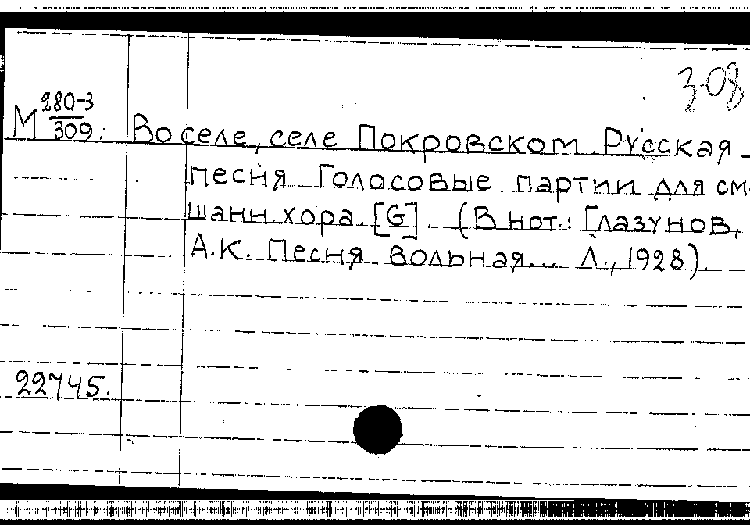 3-08
М 280-3/309. Во селе, селе Покровском. Русская
песня. Голосовые партии для см
шанн. хора. [G]. (В нот.: Глазунов,
А.К. Песня вольная... Л., 1928).
22745.